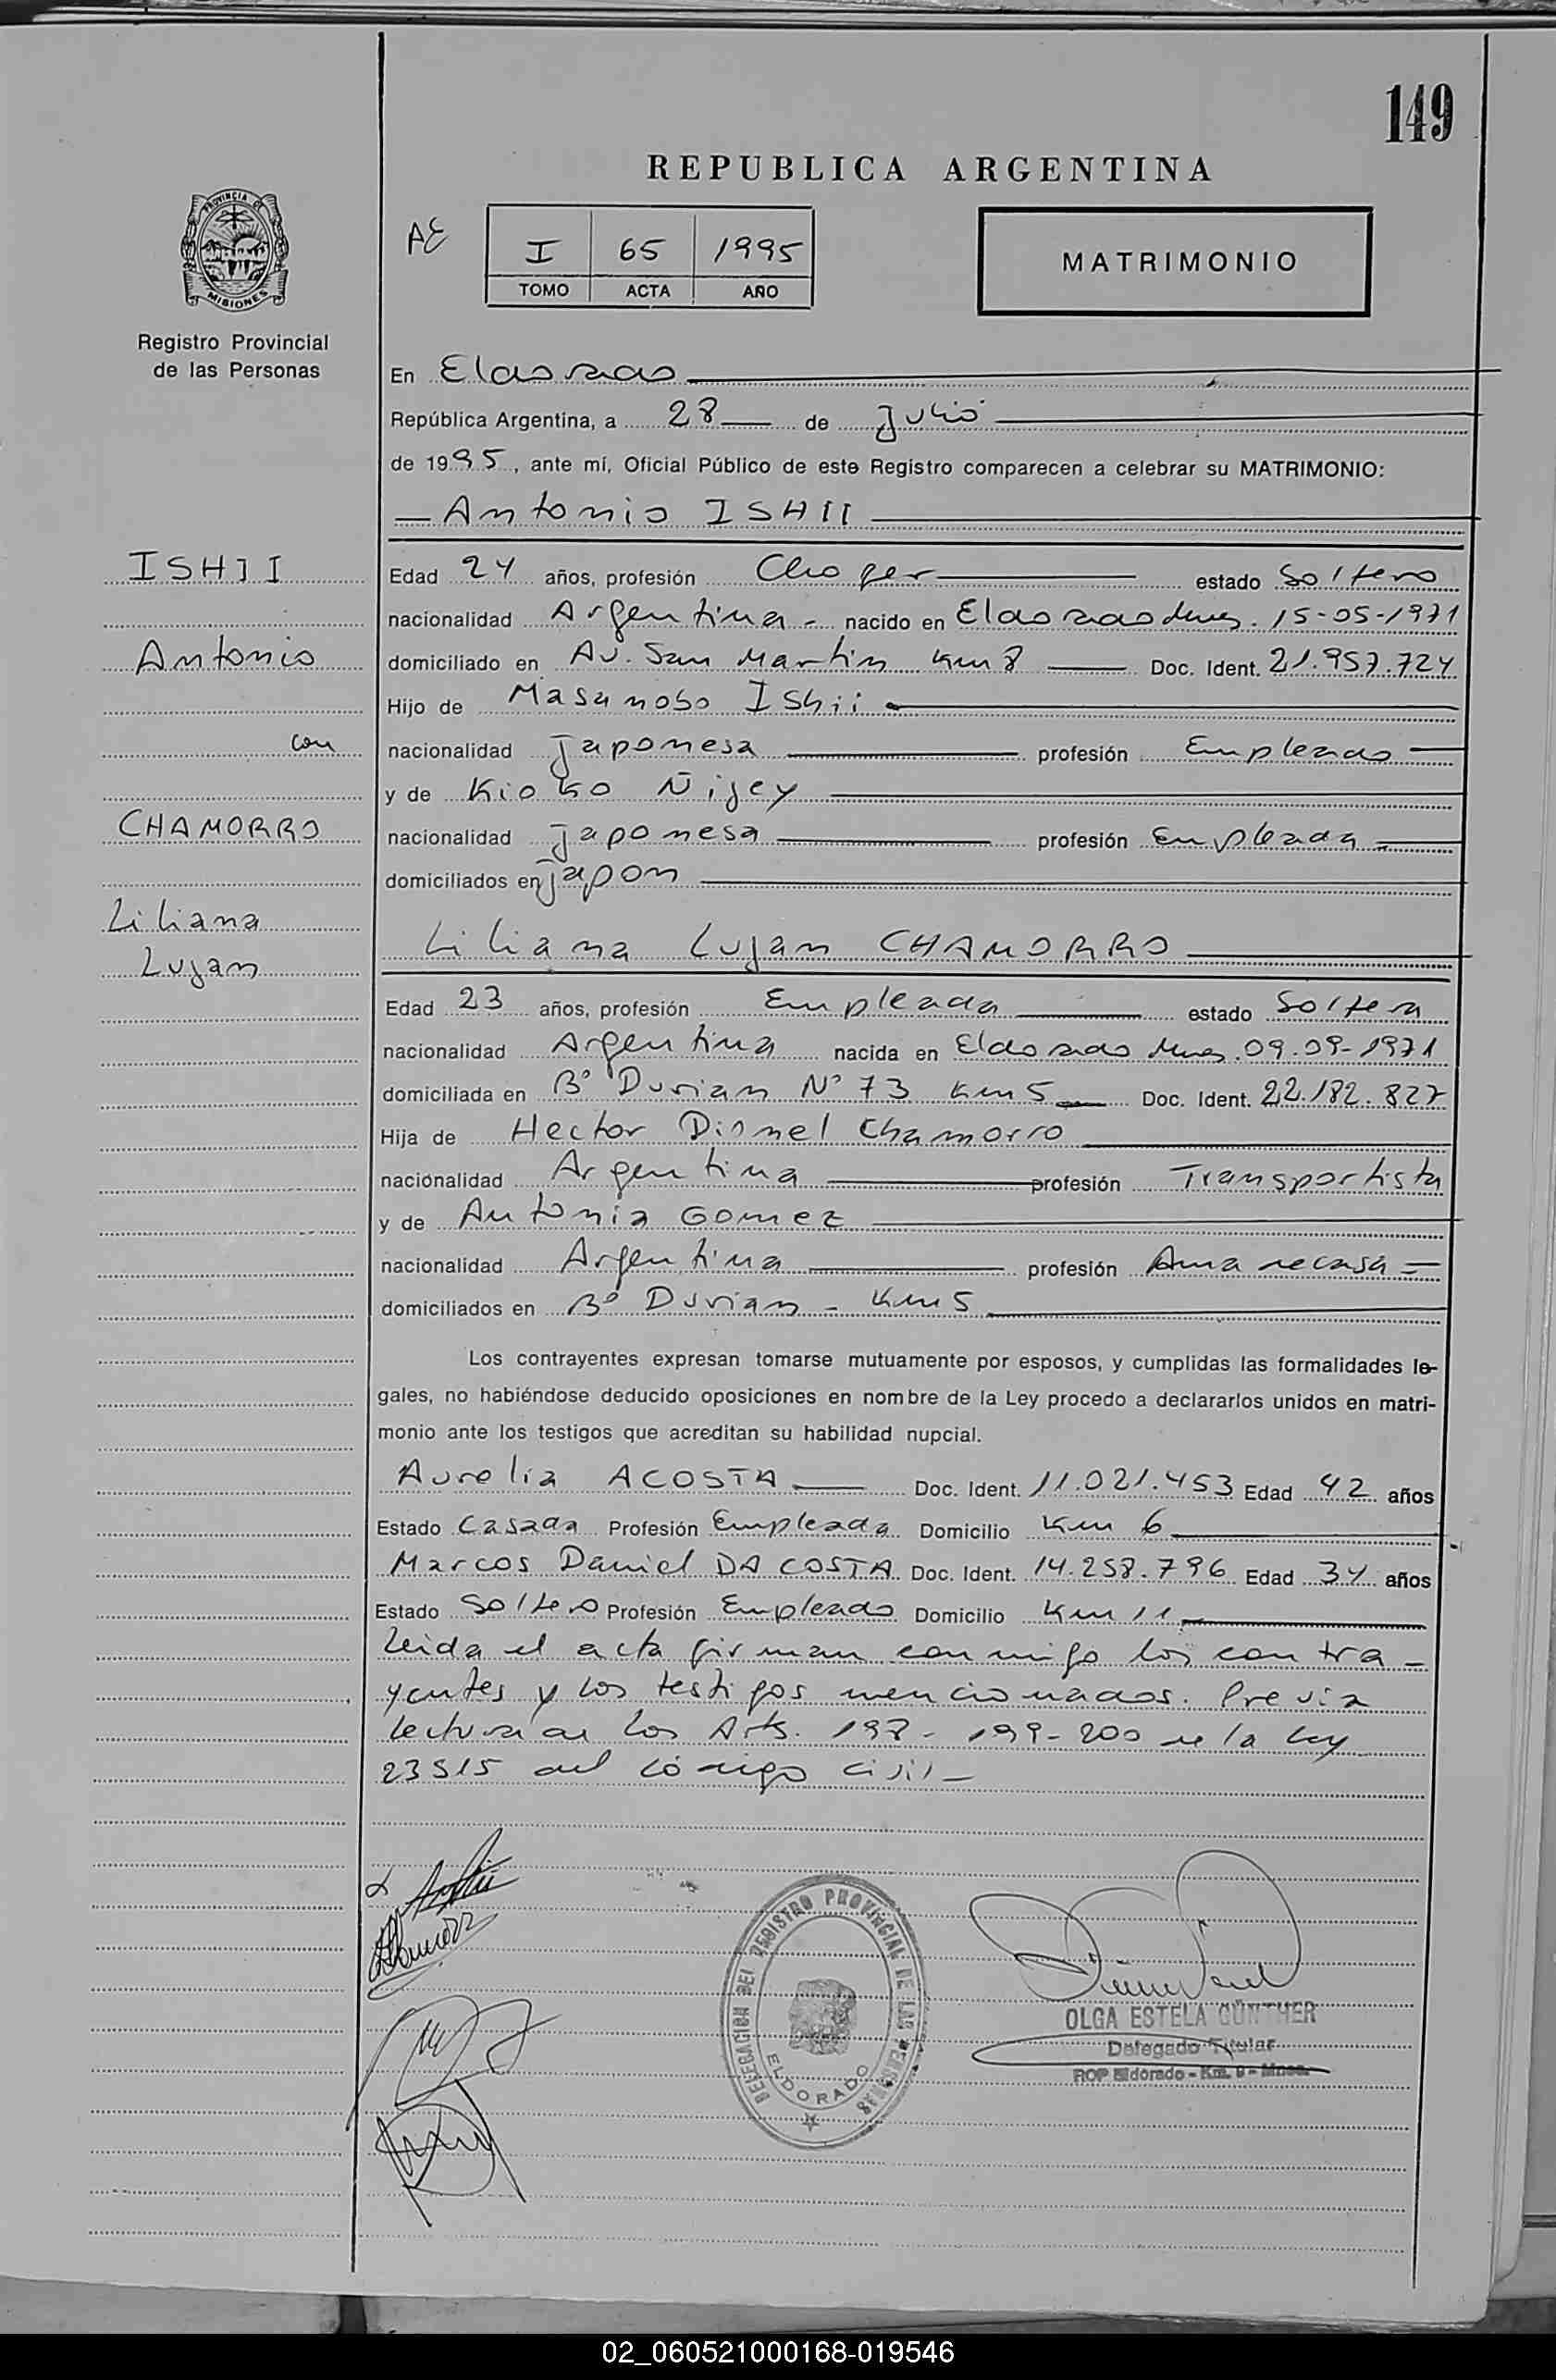 149
REPUBLICA ARGENTINA
PROVINCIA DE
MISIONES
AE
I 65 1995
TOMO ACTA AÑO
MATRIMONIO
Registro Provincial
de las Personas
En Eldorado
República Argentina, a 28 de Julio
de 1995, ante mí, Oficial Público de este Registro comparecen a celebrar su MATRIMONIO:
Antonio ISHII
ISHII
Antonio
con
CHAMORRO
Liliana
Lujan
Edad 24 años, profesión Chofer estado Soltero
nacionalidad Argentina nacido en Eldorado Mnes. 15-05-1971
domiciliado en Av. San Martin Km 8 Doc. Ident. 21.957.724
Hijo de Masanobo Ishii
nacionalidad japonesa profesión Empleado
y de Kioko Ñijey
nacionalidad japonesa profesión Empleada
domiciliados en japon
Liliana Lujan CHAMORRO
Edad 23 años, profesión Empleada estado Soltera
nacionalidad Argentina nacida en Eldorado Mnes. 09.09-1971
domiciliada en B° Durian N° 73 Km 5 Doc. Ident. 22.182.827
Hija de Hector Dionel Chamorro
nacionalidad Argentina profesión Transportista
y de Antonia Gomez
nacionalidad Argentina profesión Ama de casa
domiciliados en B° Durian - Km 5
Los contrayentes expresan tomarse mutuamente por esposos, y cumplidas las formalidades le-
gales, no habiéndose deducido oposiciones en nombre de la Ley procedo a declararlos unidos en matri-
monio ante los testigos que acreditan su habilidad nupcial.
Aurelia ACOSTA Doc. Ident. 11.021.453 Edad 42 años
Estado Casada Profesión Empleada Domicilio Km 6
Marcos Daniel DA COSTA Doc. Ident. 14.258.796 Edad 34 años
Estado Soltero Profesión Empleado Domicilio Km 11
Leida el acta firman conmigo los contra-
yentes y los testigos mencionados. Previa
lectura de los Arts. 198-199-200 de la ley
23515 del código civil-
DELEGACION DEL REGISTRO PROVINCIAL DE LAS PERSONAS
ELDORADO
OLGA ESTELA GÜNTHER
Delegado Titular
ROP Eldorado - Km. 9 - Mnes.
02_060521000168-019546